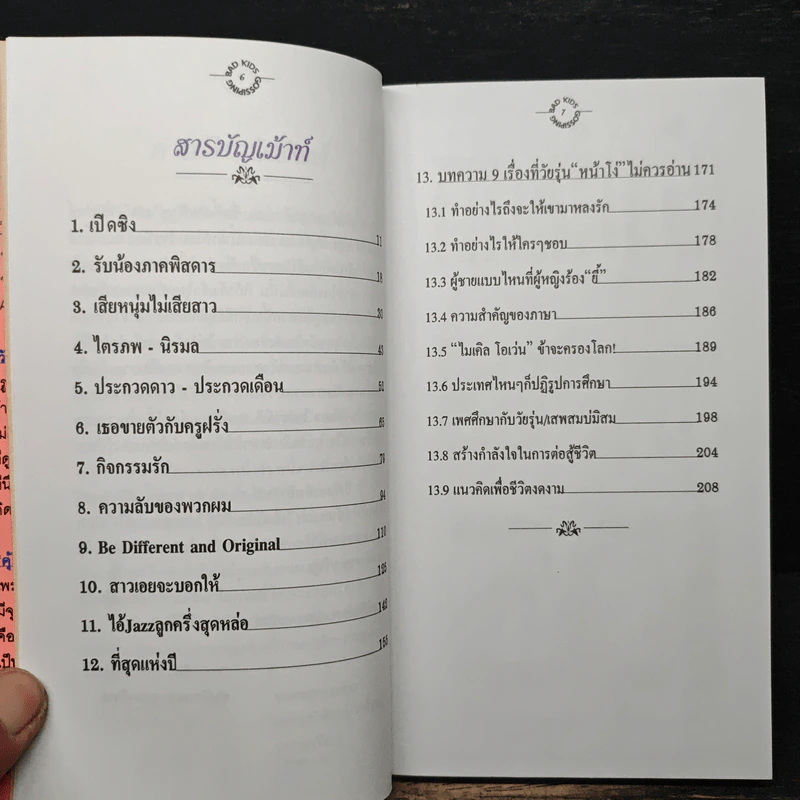 BAD KIDS GOSSIPING
6
สารบัญเม้าท์
1. เปิดซิง 11
2. รับน้องภาคพิสดาร 18
3. เสียหนุ่มไม่เสียสาว 30
4. ไตรภพ - นิรมล 43
5. ประกวดดาว - ประกวดเดือน
6. เธอขายตัวกับครูฝรั่ง 65
7. กิจกรรมรัก 79
8. ความลับของพวกผม 94
9. Be Different and Original 110
10. สาวเอยจะบอกให้ 125
11. ไอ้Jazzลูกครึ่งสุดหล่อ 142
12. ที่สุดแห่งปี
BAD KIDS GOSSIPING
7
13. บทความ 9 เรื่องที่วัยรุ่น“หน้าโง่”ไม่ควรอ่าน 171
13.1 ทำอย่างไรถึงจะให้เขามาหลงรัก 174
13.2 ทำอย่างไรให้ใครๆชอบ 178
13.3 ผู้ชายแบบไหนที่ผู้หญิงร้อง“ยี้” 182
13.4 ความสำคัญของภาษา 186
13.5 “ไมเคิล โอเว่น” ข้าจะครองโลก! 189
13.6 ประเทศไหนๆก็ปฏิรูปการศึกษา 194
13.7 เพศศึกษากับวัยรุ่น/เสพสมบ่มิสม 198
13.8 สร้างกำลังใจในการต่อสู้ชีวิต 204
13.9 แนวคิดเพื่อชีวิตงดงาม 208